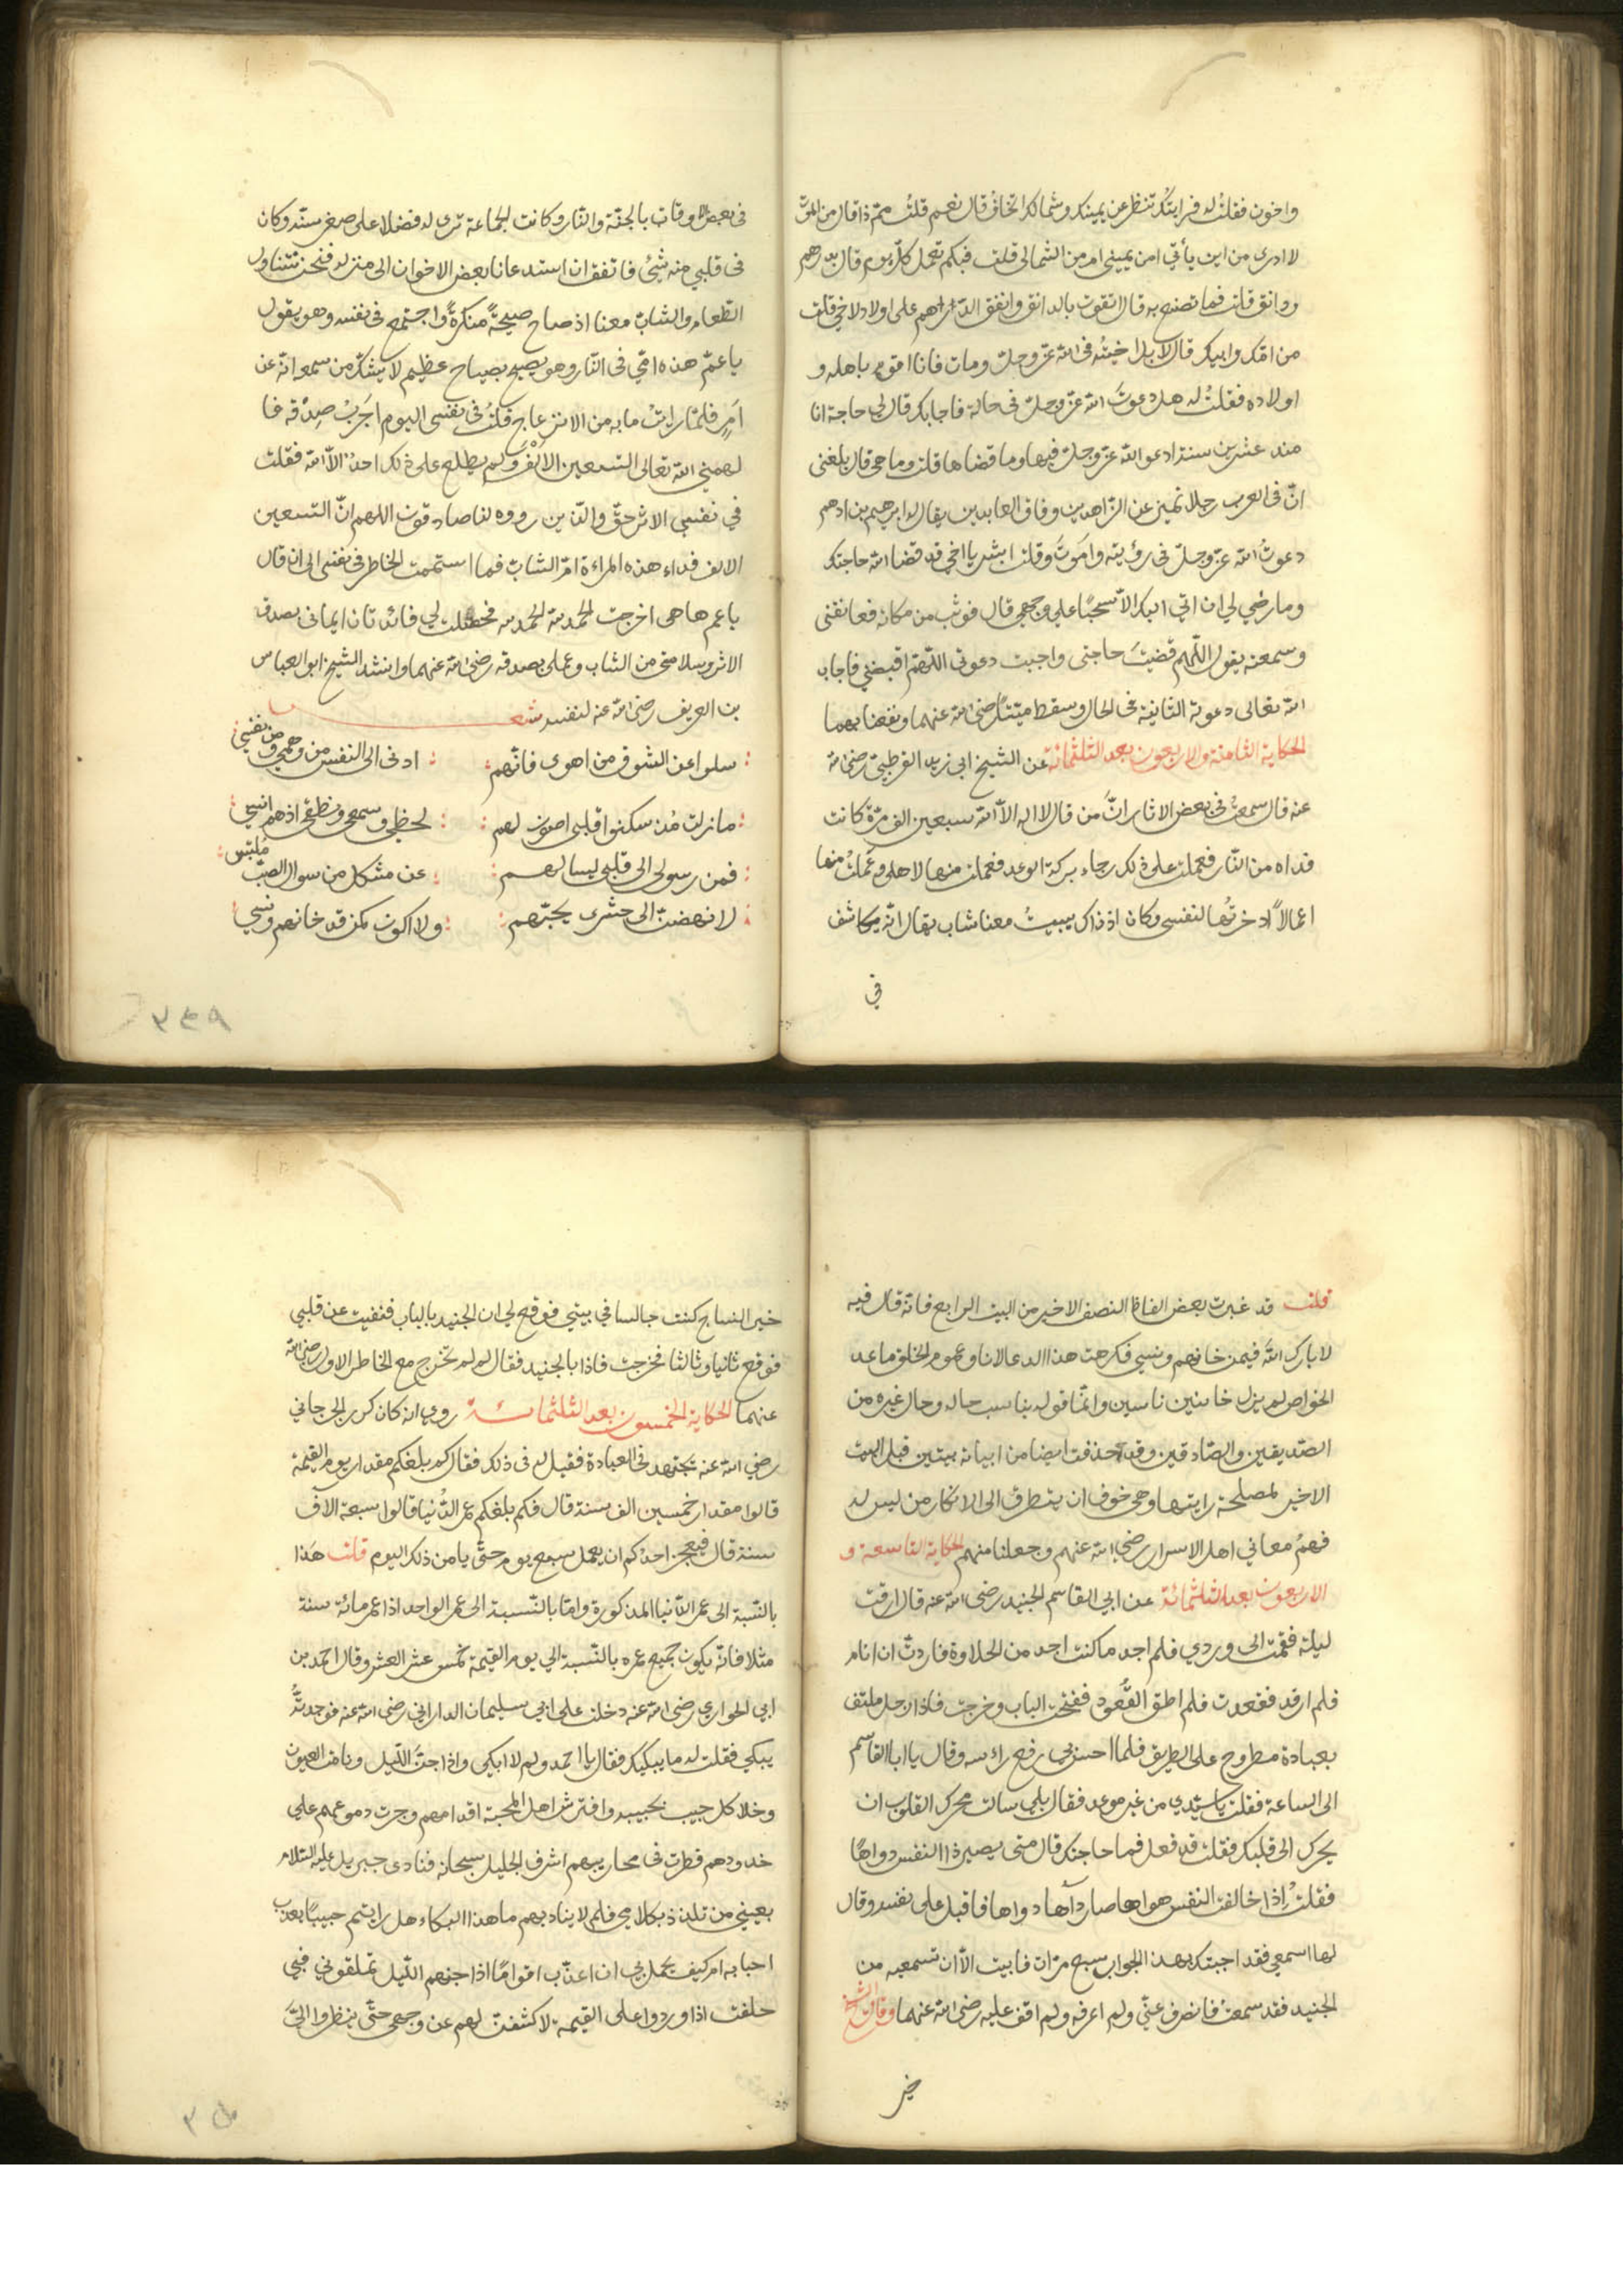 واخون فقلت له فرايتك تنظر عن يمينك وشمالك اتخاف قال نعم قلت مم ذا قال من الموت
لا ادرى من اين يأتي امن يميني ام من الشمالى قلت فبكم تعمل كل يوم قال بدرهم
ودانق قلت فما تصنع به قال اتقوت بالدانق وانفق الدرهم على اولاد لاخي قلت
من امك وابيك قال لا بل اخيته فى الله عز وجل ومات فانا اقوم باهله و
اولاده فقلت له هل دعوت الله عز وجل فى حاجة فاجابك قال لي حاجة انا
منذ عشرين سنة ادعو الله عز وجل فيها وما قضاها قلت وما هى قال بلغنى
ان فى العرب رجلا تميز عن الزاهدين وفاق العابدين يقال له ابرهيم بن ادهم
دعوت الله عز وجل فى رؤيته واموت وقلت ابشر يا اخي قد قضا الله حاجتك
وما رضي لي ان اتي اليك الا سحبًا على وجهي قال فوثب من مكانه فعانقنى
وسمعته يقول اللهم قضيت حاجتى واجبت دعوتى اللهم اقبضني فاجاب
الله تعالى دعوته الثانية فى الحال وسقط ميتًا رضى الله عنهما ونفعنا بهما
الحكاية الثامنة والاربعون بعد الثلثمائة عن الشيخ ابى زيد القرطبي رضى الله
عنه قال سمعت فى بعض الاثار ان من قال لا اله الا الله سبعين الف مرة كانت
فداه من النار فعملت على ذلك رجاء بركة الوعد فعملت منها لاهلى وعملت منها
اعمالاً ادخرتها لنفسى وكان اذ ذاك يبيت معنا شاب يقال انه يكاشف
في
فى بعض الاوقات بالجنة والنار وكانت الجماعة ترى له فضلا على صغر سنه وكان
فى قلبي منه شئ فاتفق ان استدعانا بعض الاخوان الى منزله فنحن نتناول
الطعام والشاب معنا اذ صاح صيحةً منكرةً واجتمع فى نفسه وهو يقول
يا عم هذه امي فى النار وهو يصيح بصياح عظيم لا يشك من سمعه انه عن
امر فلما رايت ما به من الانزعاج قلت فى نفسى اليوم اجرب صدقه فا
لهمني الله تعالى السبعين الالف ولم يطلع على ذلك احد الا الله فقلت
في نفسي الاثر حق والذين رووه لنا صادقون اللهم ان السبعين
الالف فداء هذه المراءة ام الشاب فما استتممت الخاطر فى نفسى الى ان قال
يا عم ها هى اخرجت الحمد لله الحمد لله فحصلت لي فائدتان ايمانى بصدق
الاثر وسلامتى من الشاب وعلمى بصدقه رضى الله عنهما وانشد الشيخ ابو العباس
بن العريف رضى الله عنه لنفسه شعر
سلوا عن الشوق من اهوى فانهم ادنى الى النفس من وهمي ومن نفسي
ما زلت مذ سكنوا قلبى اصون لهم لحظي وسمعى ونطقى اذ هم انسي
فمن رسولى الى قلبى ليسالهم عن مشكل من سوال الصب ملتبس
لانهضت الى حشرى بحبهم ولا اكون كمن قد خانهم ونسي
٣٤٩
قلت قد غيرت بعض الفاظ النصف الاخير من البيت الرابع فانه قال فيه
لا بارك الله فيمن خانهم ونسي فكرهت هذا الدعا لانا وعموم الخلق ما عد
الخواص لم يزل خائنين ناسين وانما قوله يناسب حاله وحال غيره من
الصديقين والصادقين وقد حذفت ايضا من ابياته بيتين قبل البيت
الاخير لمصلحة رايتها وهى خوف ان يتطرق الى الانكار من ليس له
فهم معاني اهل الاسرار رضي الله عنهم وجعلنا منهم الحكاية التاسعة و
الاربعون بعد الثلثمائة عن ابي القاسم الجنيد رضى الله عنه قال ارقت
ليلة فقمت الى وردي فلم اجد ما كنت اجد من الحلاوة فاردت ان انام
فلم ارقد فقعدت فلم اطق القعود ففتحت الباب وخرجت فاذا رجل ملتف
بعباءة مطروح على الطريق فلما احس بي رفع راسه وقال يا ابا القاسم
الى الساعة فقلت يا سيدي من غير موعد فقال بلى سالت محرك القلوب ان
يحرك الى قلبك فقلت قد فعل فما حاجتك قال متى يصير ذا النفس دواها
فقلت اذا خالفت النفس هواها صار داها دواها فاقبل على نفسه وقال
لها اسمعي فقد اجبتك بهذا الجواب سبع مرات فابيت الا ان تسمعيه من
الجنيد فقد سمعت فانصرف عني ولم اعرفه ولم اقف عليه رضى الله عنهما وقال الشيخ
خير
خير النساج كنت جالسا في بيتي فوقع لي ان الجنيد بالباب فنفيت عن قلبي
فوقع ثانيا وثالثا فخرجت فاذا بالجنيد فقال لم لم تخرج مع الخاطر الاول رضى الله
عنهما الحكاية الخمسون بعد الثلثمائة روي انه كان كرز الجرجاني
رضي الله عنه يجتهد فى العبادة فقيل له فى ذلك فقال كم بلغكم مقدار يوم القيمة
قالوا مقدار خمسين الف سنة قال فكم بلغكم عمر الدنيا قالوا سبعة الآف
سنة قال فيعجز احدكم ان يعمل سبع يوم حتى يامن ذلك اليوم قلت هذا
بالنسبة الى عمر الدنيا المذكورة واما بالنسبة الى عمر الواحد اذا عمر مائة سنة
مثلا فانه يكون جميع عمره بالنسبة الي يوم القيمة خمس عشر العشر وقال احمد بن
ابي الحواري رضى الله عنه دخلت على ابي سليمان الداراني رضى الله عنه فوجدته
يبكي فقلت له ما يبكيك فقال يا احمد ولم لا ابكى واذا جن الليل ونامت العيون
وخلا كل حبيب بحبيبه وافترش اهل المحبة اقدامهم وجرت دموعهم علي
خدودهم قطرت فى محاريبهم اشرف الجليل سبحانه فنادى جبريل عليه السلام
بعيني من تلذذ بكلامي فلم لا يناديهم ما هذا البكاء هل رايتم حبيبًا يعذب
احبابه ام كيف يجمل بي ان اعذب اقوامًا اذا جنهم الليل تملقوني فبي
حلفت اذا وردوا على القيمة لاكشفن لهم عن وجهى حتى ينظروا الىّ